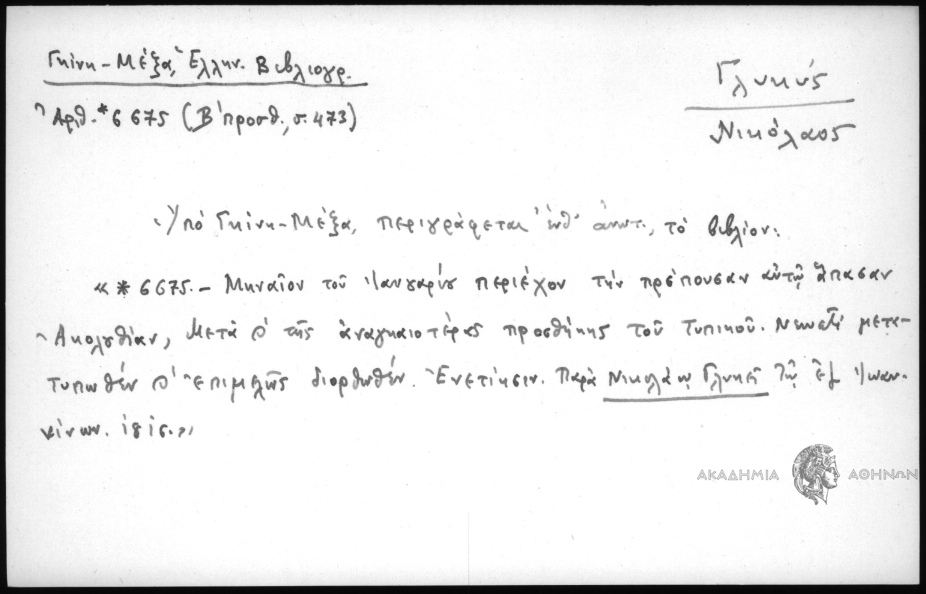 Γκίνη-Μέξα, Ἑλλην. Βιβλιογρ.
Ἀριθ. *6675 (Β' προσθ., σ. 473)
Γλυκύς
Νικόλαος
Ὑπό Γκίνη-Μέξα, περιγράφεται ὑπ' ἀριθ., τό βιβλίον:
«*6675.- Μηναῖον τοῦ Ἰανουαρίου περιέχον τήν πρέπουσαν αὐτῷ ἅπασαν
Ἀκολουθίαν, μετά & τῆς ἀναγκαιοτέρας προσθήκης τοῦ Τυπικοῦ. Νεωστί μετα-
τυπωθέν & ἐπιμελῶς διορθωθέν. Ἐνετίησιν. Παρά Νικολάῳ Γλυκεῖ τῷ ἐξ Ἰωαν-
νίνων.
ΑΚΑΔΗΜΙΑ ΑΘΗΝΩΝ